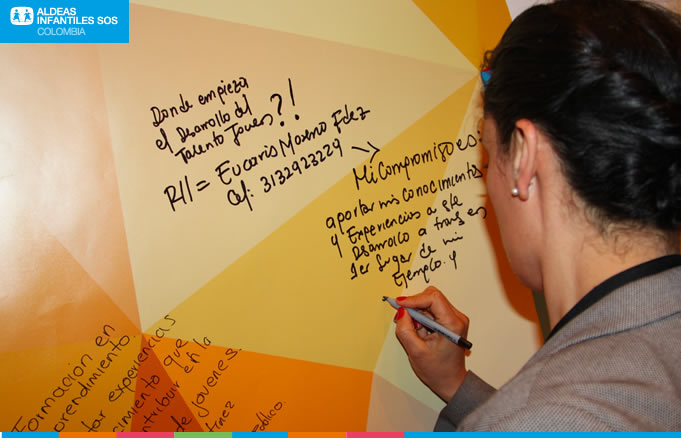 ALDEAS
INFANTILES SOS
COLOMBIA
Donde empieza
el Desarrollo del
Talento Joven?!
R// = Eucaris Moreno Fdez
Cel: 3132923229
Mi Compromiso es:
aportar mis conocimientos
y Experiencias a este
Desarrollo a traves
1er lugar de mi
Ejemplo. y
Formacion en
experiencias
que
en la
de jovenes.